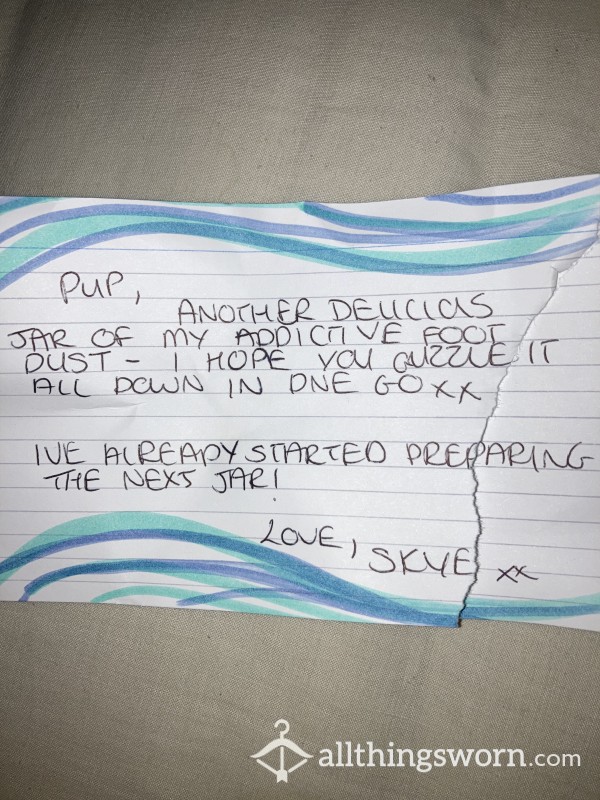 PUP,
ANOTHER DELICIOUS
JAR OF MY ADDICTIVE FOOT
DUST - I HOPE YOU GUZZLE IT
ALL DOWN IN ONE GO xx
IVE ALREADY STARTED PREPARING
THE NEXT JAR!
LOVE, SKYE xx
allthingsworn.com